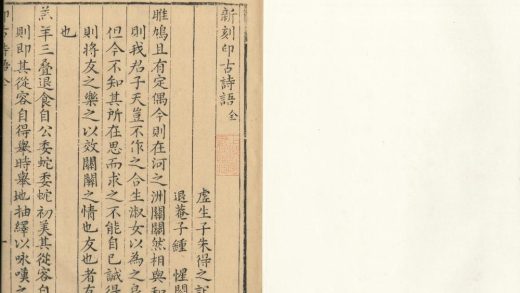 新刻印古詩語 全
虛生子朱得之
退菴子鍾 惺閱
雎鳩且有定偶今則在河之洲關關然相與和
則我君子天豈不作之合生淑女以為之良
但今不知其所在思而求之不能自已誠得
則將友之樂之以效關關之情也友也者友
也
羔羊三叠退食自公委蛇委蛇初美其從容自
則即其從容自得舉時舉地抽繹以咏嘆之
印古詩語全